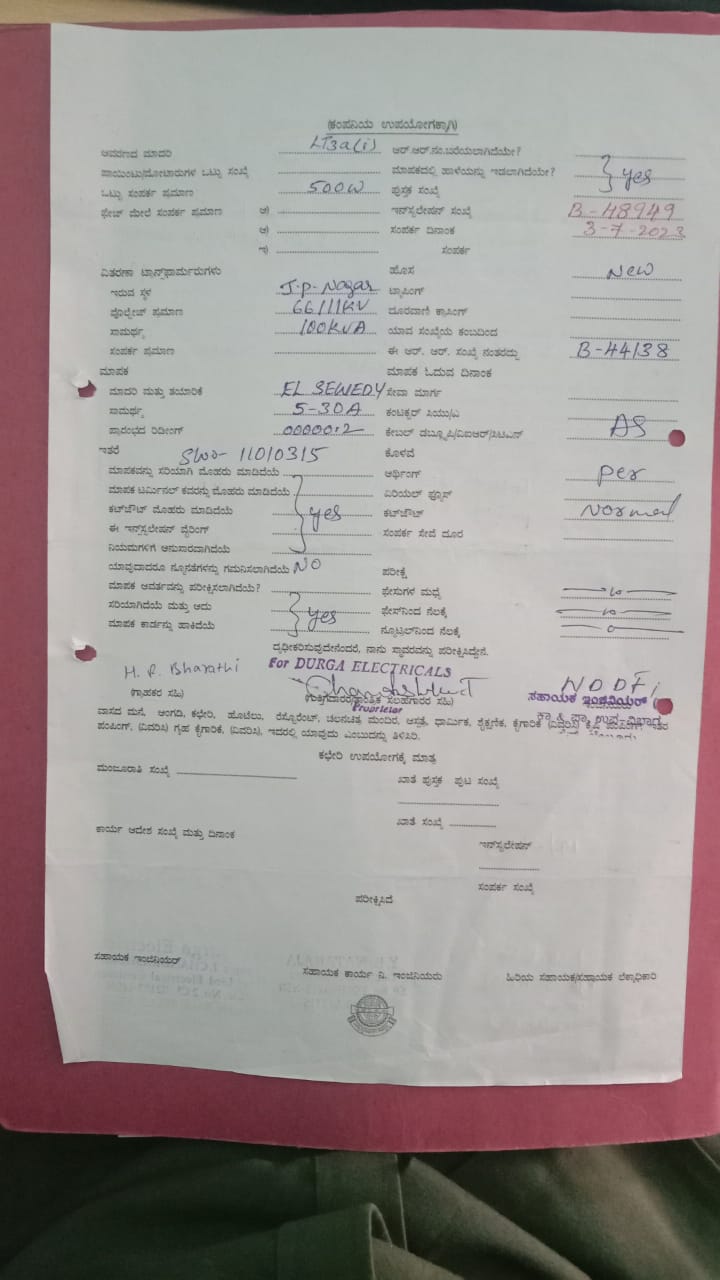 (ಕಂಪನಿಯ ಉಪಯೋಗಕ್ಕಾಗಿ)
ಆವರಣದ ಮಾದರಿ LT3a(i) ಆರ್.ಆರ್.ನಂ.ಬರೆಯಲಾಗಿದೆಯೇ?
ಪಾಯಿಂಟು/ಮೋಟಾರುಗಳ ಒಟ್ಟು ಸಂಖ್ಯೆ ಮಾಪಕದಲ್ಲಿ ಹಾಳೆಯನ್ನು ಇಡಲಾಗಿದೆಯೇ? } yes
ಒಟ್ಟು ಸಂಪರ್ಕ ಪ್ರಮಾಣ 500W ಪುಸ್ತಕ ಸಂಖ್ಯೆ
ಫೇಜ್ ಮೇಲೆ ಸಂಪರ್ಕ ಪ್ರಮಾಣ ಇನ್‌ಸ್ಟಲೇಷನ್ ಸಂಖ್ಯೆ B-48949
ಸಂಪರ್ಕ ದಿನಾಂಕ 3-7-2023
ಸಂಪರ್ಕ
ವಿತರಣಾ ಟ್ರಾನ್ಸ್‌ಫಾರ್ಮರುಗಳು ಹೊಸ New
ಇರುವ ಸ್ಥಳ J.P. Nagar ಟ್ಯಾಪಿಂಗ್
ವೋಲ್ಟೇಜ್ ಪ್ರಮಾಣ 66/11KV ದೂರವಾಣಿ ಕ್ರಾಸಿಂಗ್
ಸಾಮರ್ಥ್ಯ 100KVA ಯಾವ ಸಂಖ್ಯೆಯ ಕಂಬದಿಂದ
ಸಂಪರ್ಕ ಪ್ರಮಾಣ ಈ ಆರ್. ಆರ್. ಸಂಖ್ಯೆ ನಂತರದ್ದು B-44138
ಮಾಪಕ ಮಾಪಕ ಓದುವ ದಿನಾಂಕ
ಮಾದರಿ ಮತ್ತು ತಯಾರಿಕೆ EL SEWEDY ಸೇವಾ ಮಾರ್ಗ
ಸಾಮರ್ಥ್ಯ 5-30A ಕಂಡಕ್ಟರ್ ಸಿಯು/ಎ
ಪ್ರಾರಂಭದ ರಿಡಿಂಗ್ 00000:2 ಕೇಬಲ್ AS
ಇತರೆ 11010315 ಕೊಳವೆ
ಮಾಪಕವನ್ನು ಸರಿಯಾಗಿ ಮೊಹರು ಮಾಡಿದೆಯೆ ಅರ್ಥಿಂಗ್ per
ಮಾಪಕ ಟರ್ಮಿನಲ್ ಕವರನ್ನು ಮೊಹರು ಮಾಡಿದೆಯೆ ಏರಿಯಲ್ ಫ್ಯೂಸ್
ಕಟ್‌ಔಟ್ ಮೊಹರು ಮಾಡಿದೆಯೆ } yes ಕಟ್‌ಔಟ್ Normal
ಈ ಇನ್ಸ್‌ಟಲೇಷನ್ ವೈರಿಂಗ್ ಸಂಪರ್ಕ ಸೇವೆ ದೂರ
ನಿಯಮಗಳಿಗೆ ಅನುಸಾರವಾಗಿದೆಯೆ
ಯಾವುದಾದರೂ ನ್ಯೂನತೆಗಳನ್ನು ಗಮನಿಸಲಾಗಿದೆಯೆ NO ಪರೀಕ್ಷೆ
ಮಾಪಕ ಆವರ್ತವನ್ನು ಪರೀಕ್ಷಿಸಲಾಗಿದೆಯೆ? ಫೇಸುಗಳ ಮಧ್ಯೆ
ಸರಿಯಾಗಿದೆಯೆ ಮತ್ತು ಅದು } yes ಫೇಸ್‌ನಿಂದ ನೆಲಕ್ಕೆ
ಮಾಪಕ ಕಾರ್ಡನ್ನು ಹಾಕಿದೆಯೆ ನ್ಯೂಟ್ರಲ್‌ನಿಂದ ನೆಲಕ್ಕೆ
ದೃಢೀಕರಿಸುವುದೇನೆಂದರೆ, ನಾನು ಸ್ಥಾವರವನ್ನು ಪರೀಕ್ಷಿಸಿದ್ದೇನೆ.
For DURGA ELECTRICALS
H. R. Bharathi
(ಗ್ರಾಹಕರ ಸಹಿ) (ಗುತ್ತಿಗೆದಾರರ/ತಾಂತ್ರಿಕ ಸಲಹಗಾರರ ಸಹಿ) ಸಹಾಯಕ ಇಂಜಿನಿಯರ್
Proprietor
ವಾಸದ ಮನೆ, ಅಂಗಡಿ, ಕಛೇರಿ, ಹೋಟೆಲು, ರೆಸ್ಟೋರೆಂಟ್, ಚಲನಚಿತ್ರ ಮಂದಿರ, ಆಸ್ಪತ್ರೆ, ಧಾರ್ಮಿಕ, ಶೈಕ್ಷಣಿಕ, ಕೈಗಾರಿಕೆ (ವಿವರಿಸಿ) ಕೃಷಿ ಇತರ
ಪಂಪಿಂಗ್, (ವಿವರಿಸಿ) ಗೃಹ ಕೈಗಾರಿಕೆ, (ವಿವರಿಸಿ), ಇದರಲ್ಲಿ ಯಾವುದು ಎಂಬುದನ್ನು ತಿಳಿಸಿರಿ.
ಕಛೇರಿ ಉಪಯೋಗಕ್ಕೆ ಮಾತ್ರ
ಮಂಜೂರಾತಿ ಸಂಖ್ಯೆ ಖಾತೆ ಪುಸ್ತಕ ಪುಟ ಸಂಖ್ಯೆ
ಖಾತೆ ಸಂಖ್ಯೆ
ಕಾರ್ಯ ಆದೇಶ ಸಂಖ್ಯೆ ಮತ್ತು ದಿನಾಂಕ
ಇನ್‌ಸ್ಟಲೇಷನ್
ಸಂಪರ್ಕ ಸಂಖ್ಯೆ
ಪರೀಕ್ಷಿಸಿದೆ
ಸಹಾಯಕ ಇಂಜಿನಿಯರ್ ಸಹಾಯಕ ಕಾರ್ಯ ನಿ. ಇಂಜಿನಿಯರು ಹಿರಿಯ ಸಹಾಯಕ/ಸಹಾಯಕ ಲೆಕ್ಕಾಧಿಕಾರಿ